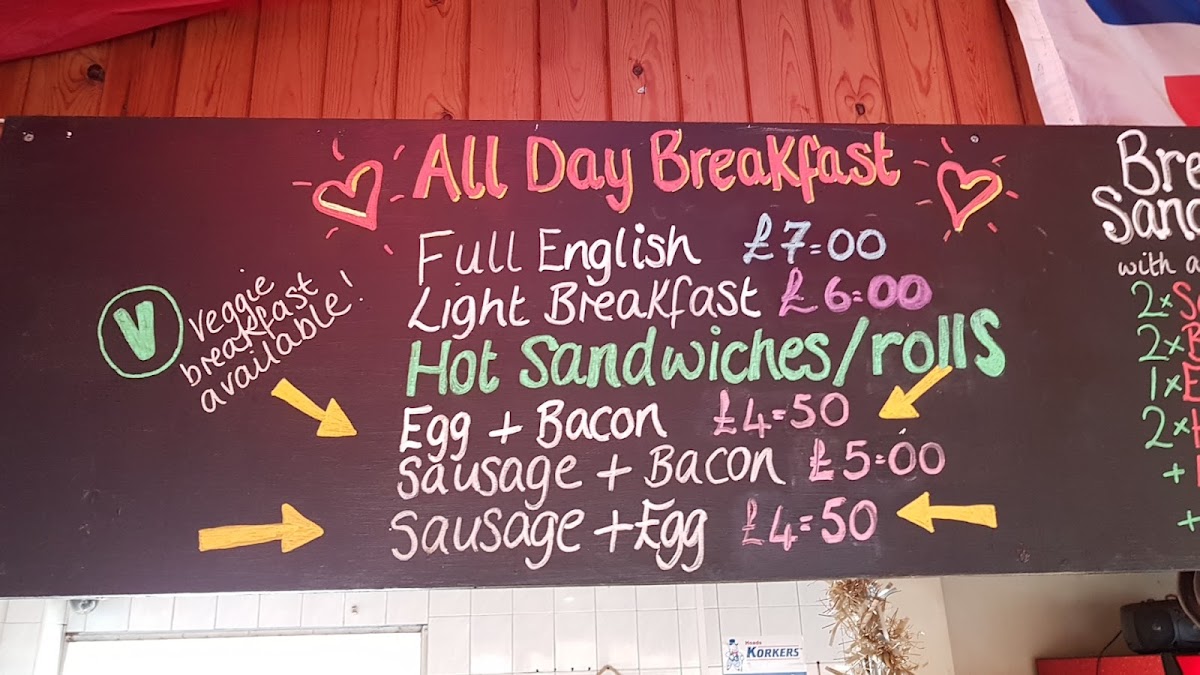 All Day Breakfast
Full English £7=00
Light Breakfast £6=00
Hot Sandwiches/rolls
Egg + Bacon £4=50
Sausage + Bacon £5=00
Sausage + Egg £4=50
V
Veggie
breakfast
available!
with a
2x
2x
1x
2x
+
+
KORKERS